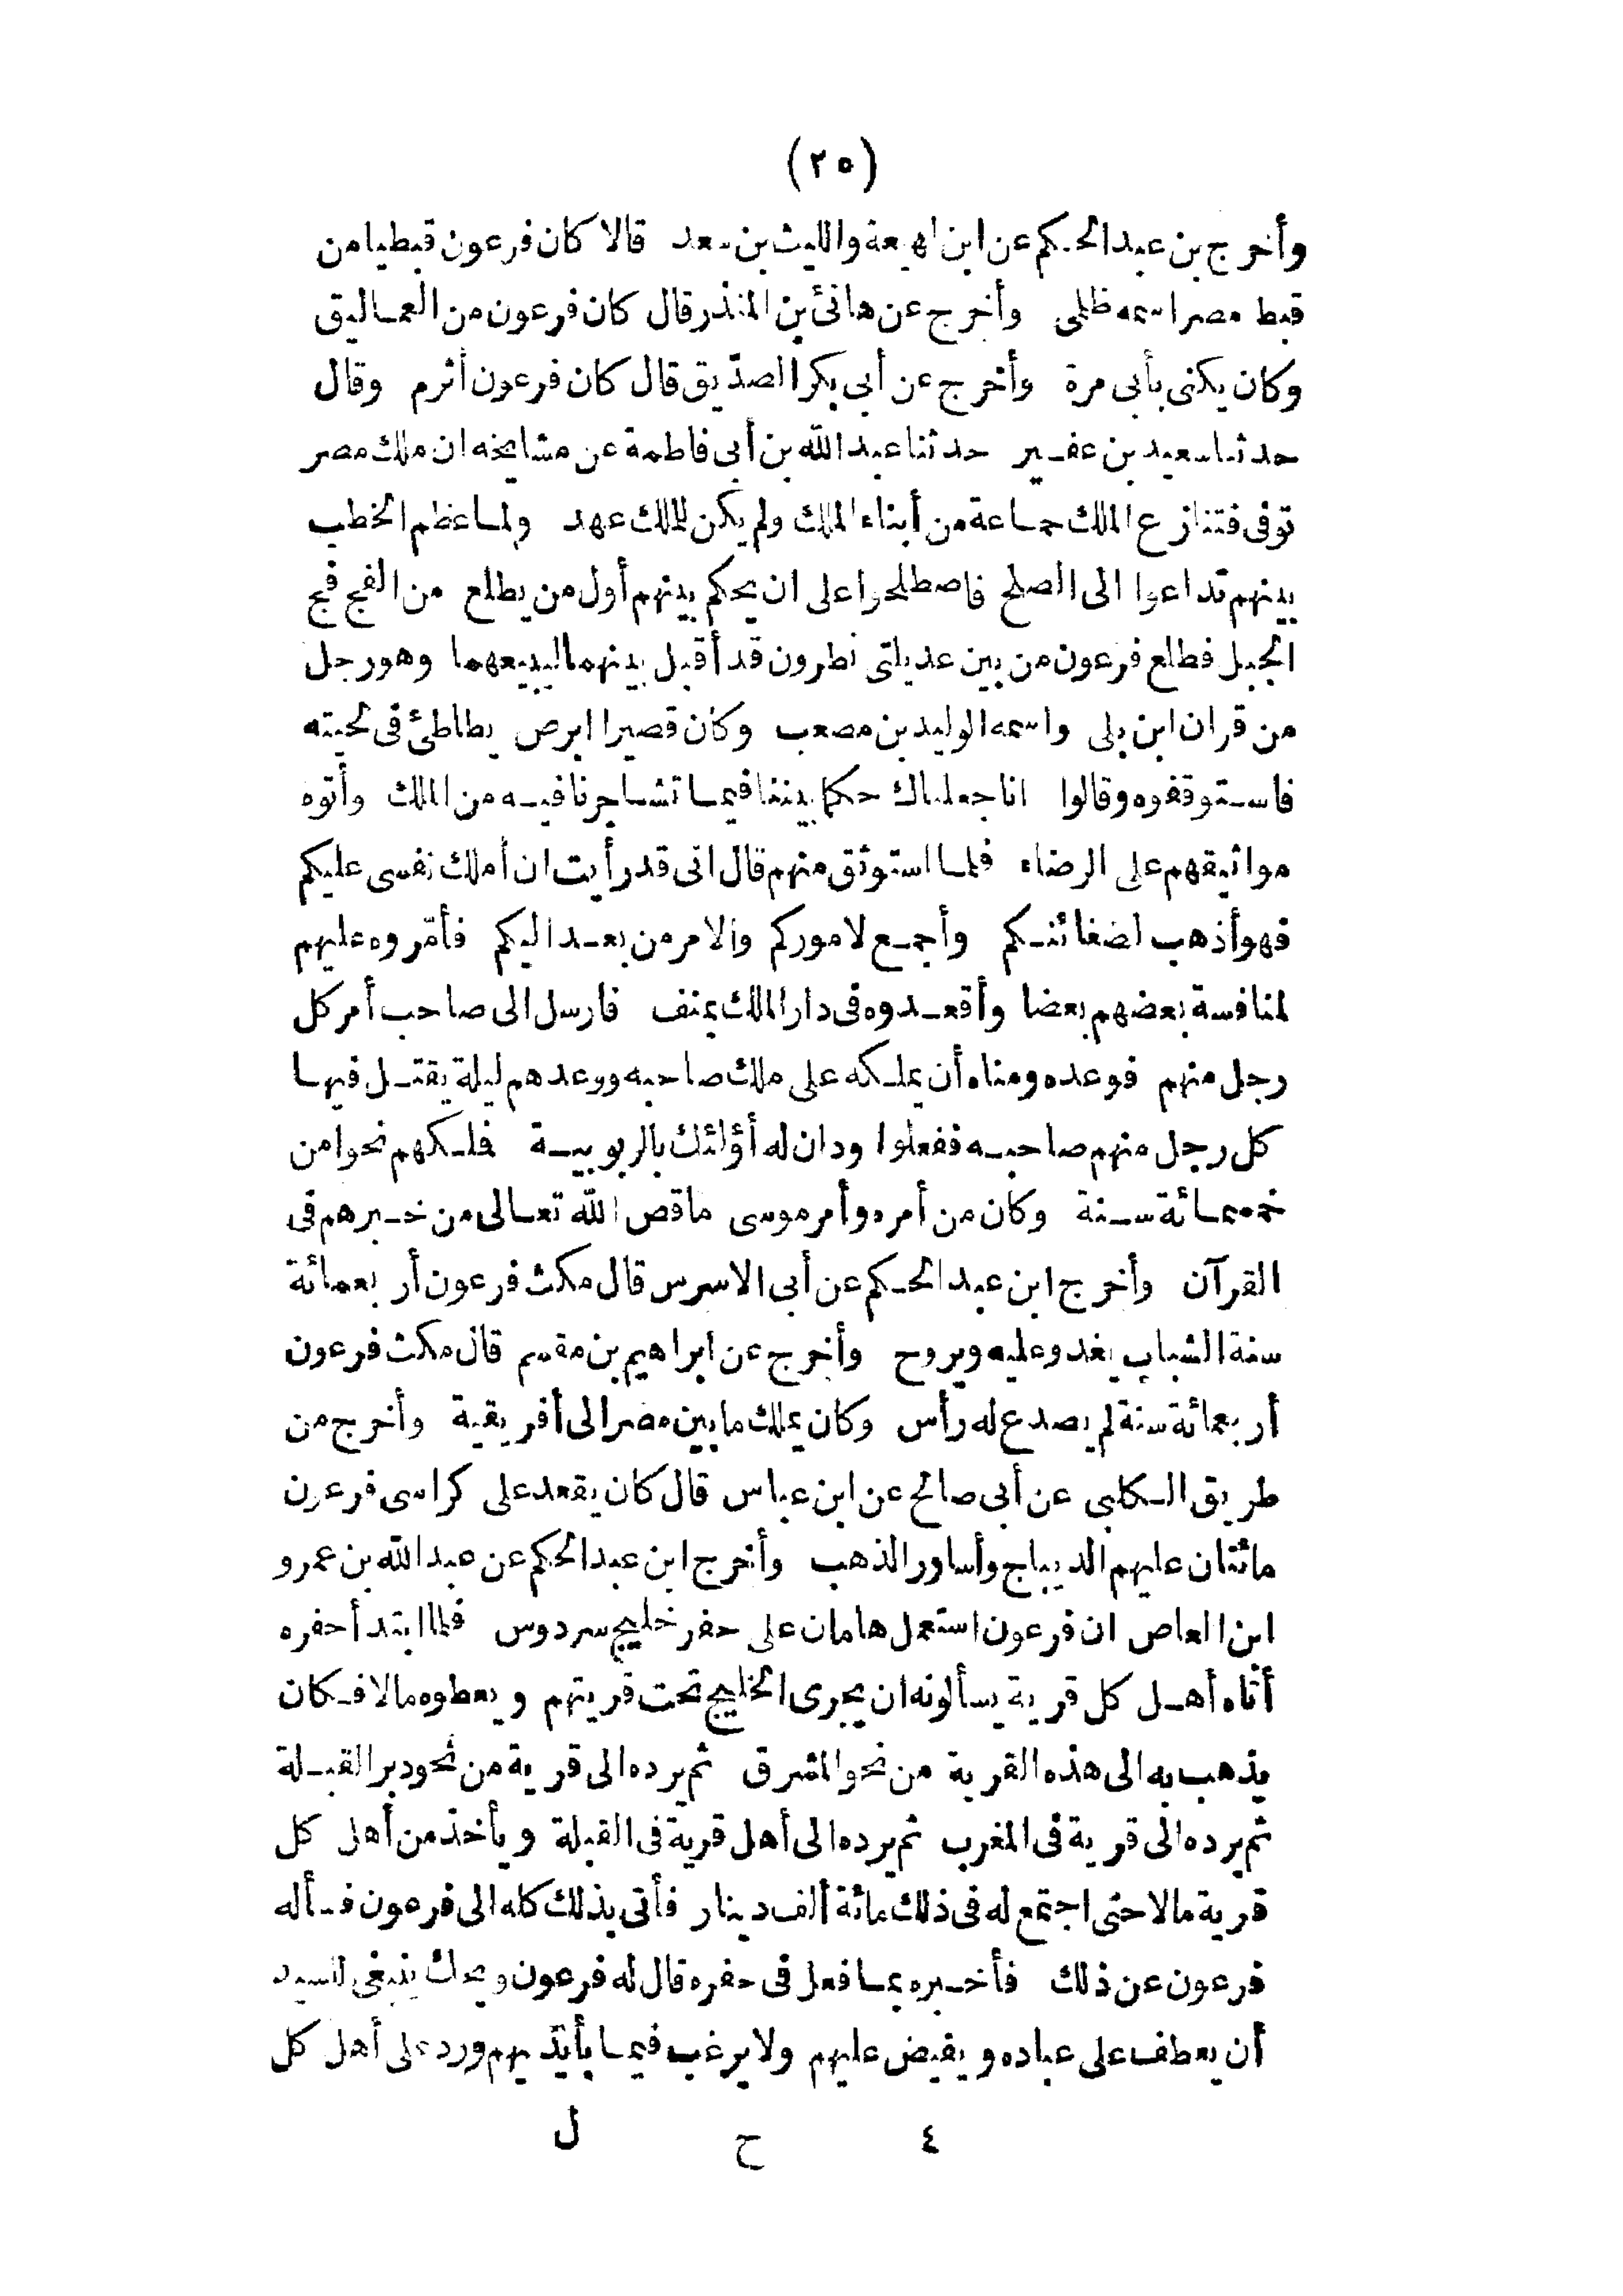 (٢٥)
وأخرج بن عبد الحكم عن ابن لهيعة والليث بن سعد قالا كان فرعون قبطيا من
قبط مصر اسمه ظلمى وأخرج عن هانئ بن المنذر قال كان فرعون من العماليق
وكان يكنى بأبى مرة وأخرج عن أبى بكر الصدّيق قال كان فرعون أثرم وقال
حدثنا سعيد بن عفير حدثنا عبد الله بن أبى فاطمة عن مشايخه ان ملك مصر
توفى فتنازع الملك جماعة من أبناء الملك ولم يكن للملك عهد ولما عظم الخطب
بينهم تداعوا الى الصلح فاصطلحوا على ان يحكم بينهم أول من يطلع من الفج فج
الجبل فطلع فرعون من بين عديلتى نطرون قد أقبل بينهما ليبيعهما وهو رجل
من قران ابن بلى واسمه الوليد بن مصعب وكان قصيرا ابرص يطاطئ فى لحيته
فاستوقفوه وقالوا انا جعلناك حكما بيننا فيما تشاجرنا فيه من الملك وأتوه
مواثيقهم على الرضاء فلما استوثق منهم قال انى قد رأيت ان أملك نفسى عليكم
فهو أذهب لضغائنكم وأجمع لاموركم والامر من بعد اليكم فأمّروه عليهم
لمنافسة بعضهم بعضا وأقعدوه فى دار الملك بمنف فارسل الى صاحب أمر كل
رجل منهم فوعده ومناه أن يملكه على ملك صاحبه ووعدهم ليلة يقتل فيها
كل رجل منهم صاحبه ففعلوا ودان له أؤلئك بالربوبية فملكهم نحوا من
خمسمائة سنة وكان من أمره وأمر موسى ما قص الله تعالى من خبرهم فى
القرآن وأخرج ابن عبد الحكم عن أبى الاسرس قال مكث فرعون أربعمائة
سنة الشباب يغدو عليه ويروح وأخرج عن ابراهيم بن مقسم قال مكث فرعون
أربعمائة سنة لم يصدع له رأس وكان يملك ما بين مصر الى أفريقية وأخرج من
طريق الكلبى عن أبى صالح عن ابن عباس قال كان يقعد على كراسى فرعون
مائتان عليهم الديباج وأساور الذهب وأخرج ابن عبد الحكم عن عبد الله بن عمرو
ابن العاص ان فرعون استعمل هامان على حفر خليج سردوس فلما ابتدأ حفره
أتاه أهل كل قرية يسألونه ان يجرى الخليج تحت قريتهم ويعطوه مالا فكان
يذهب به الى هذه القرية من نحو المشرق ثم يرده الى قرية من نحو دبر القبلة
ثم يرده الى قرية فى المغرب ثم يرده الى أهل قرية فى القبلة ويأخذ من أهل كل
قرية مالا حتى اجتمع له فى ذلك مائة ألف دينار فأتى بذلك كله الى فرعون فسأله
فرعون عن ذلك فأخبره بما فعل فى حفره قال له فرعون ويحك ينبغى للسيد
أن يعطف على عباده ويفيض عليهم ولا يرغب فيما بأيديهم ورد على أهل كل
٤ ح ل